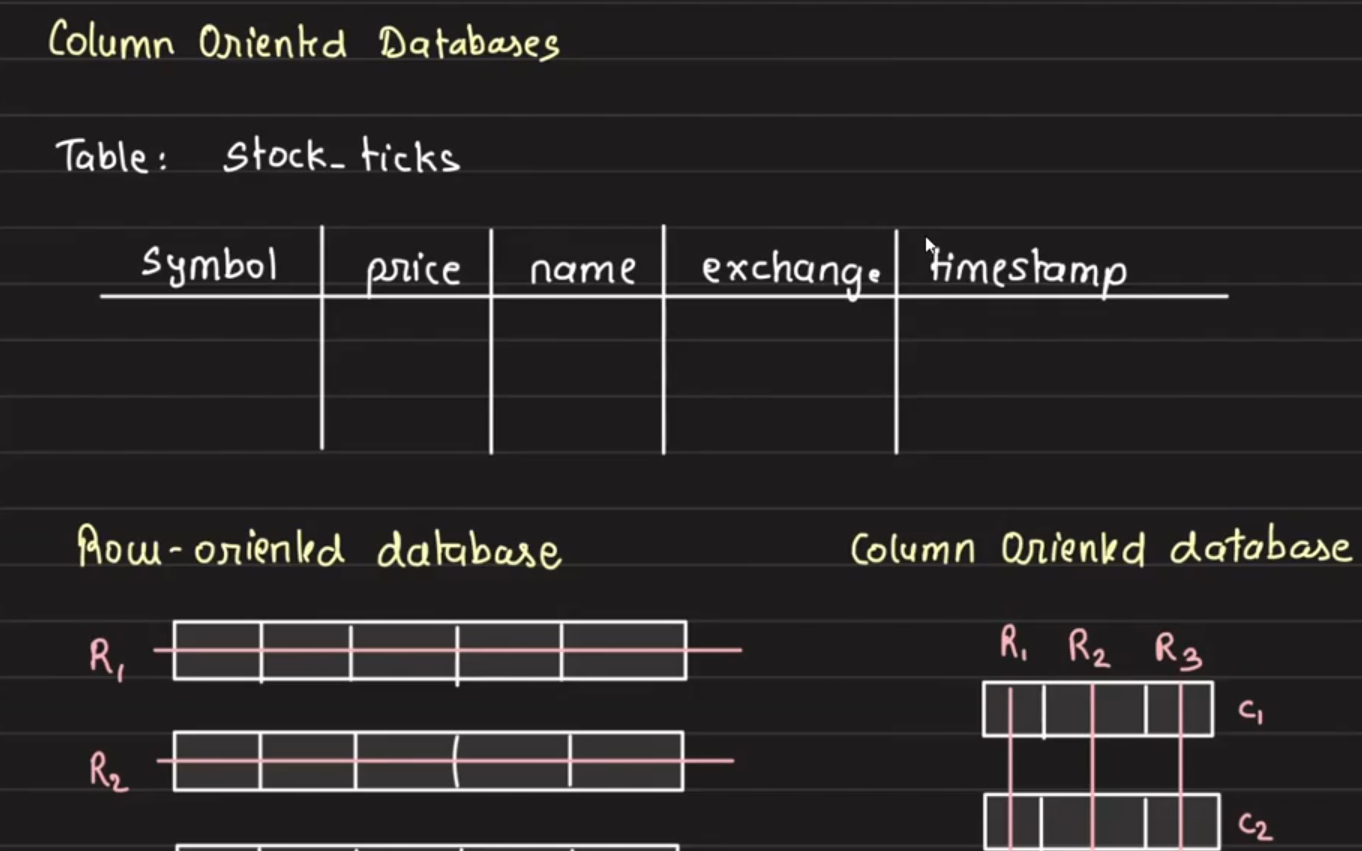 Column Oriented Databases
Table: Stock_ticks
Symbol price name exchange timestamp
Row-oriented database
Column Oriented database
R1
R2
R1 R2 R3
C1
C2